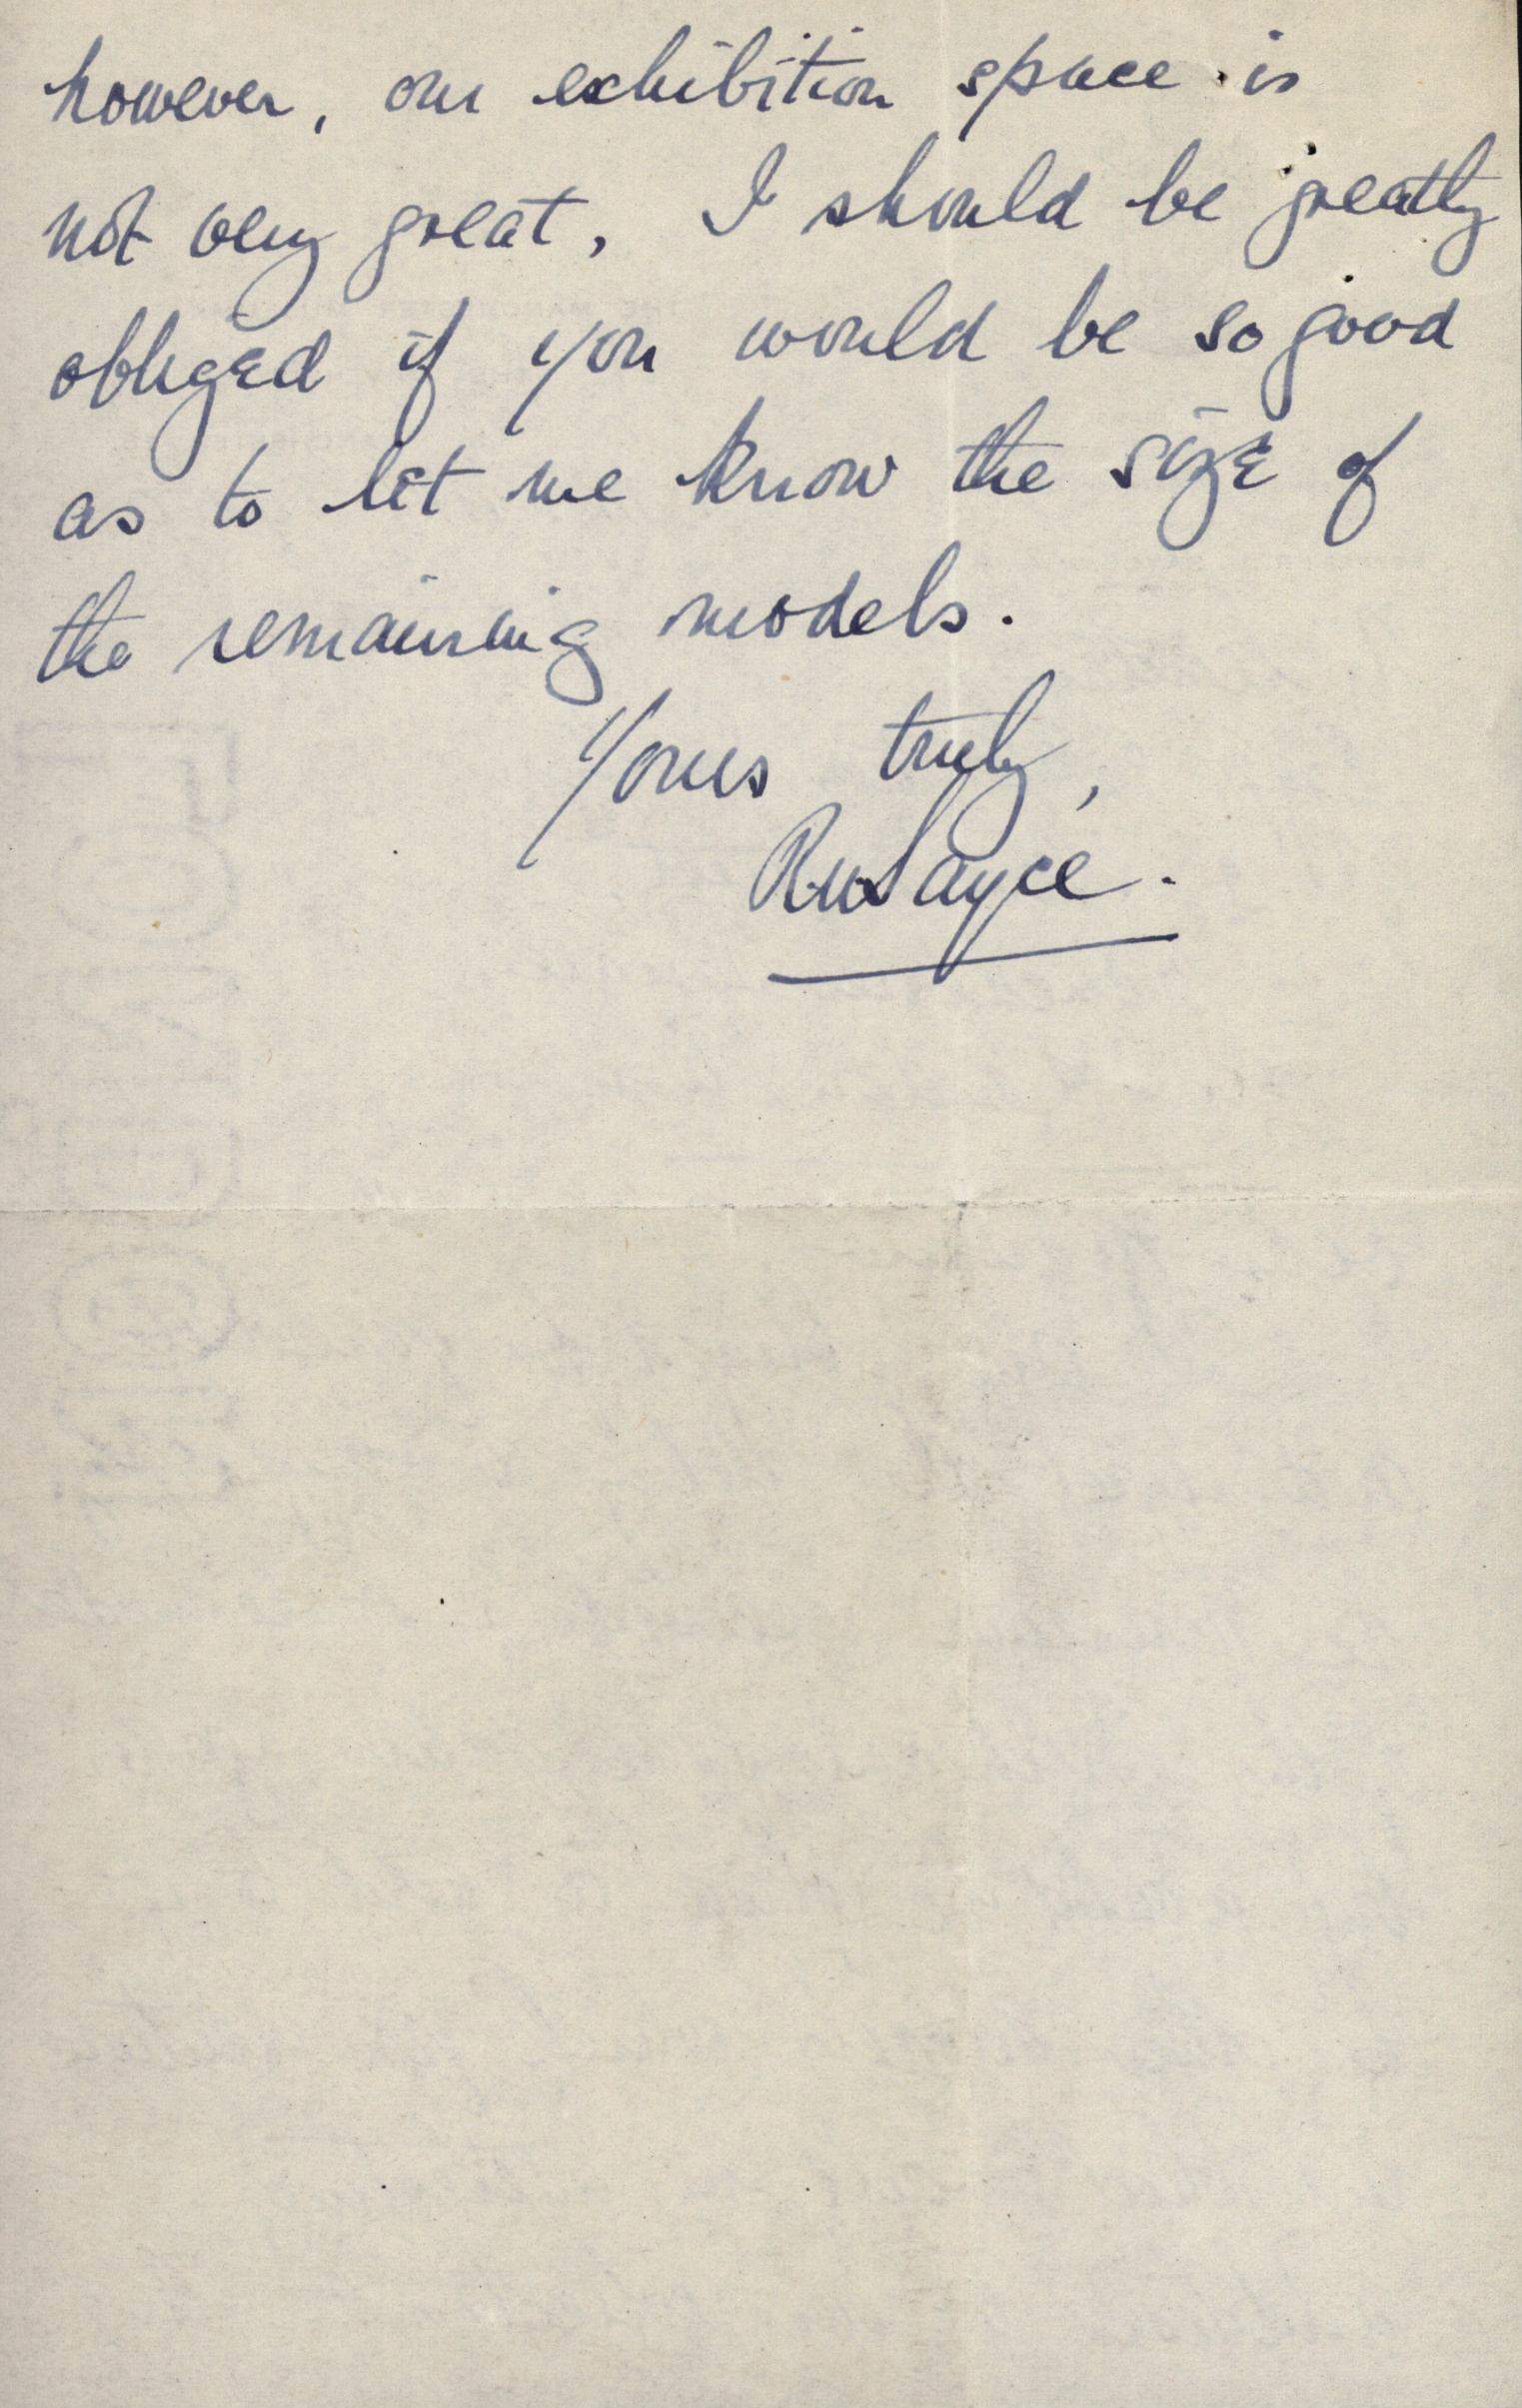 however, our exhibition space is
not very great. I should be greatly
obliged if you would be so good
as to let me know the size of
the remaining models.
Yours truly,
RuSayce.